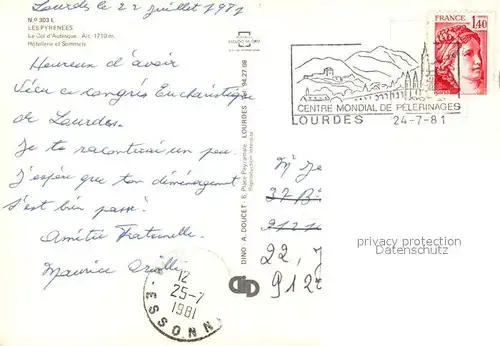 Lourdes le 22 juillet 1981
N.º 303 L
LES PYRENEES
Le Col d'Aubisque. Alt. 1710 m.
Hôtellerie et Sommets
Heureux d'avoir
Vécu ce congrès Eucharistique
de Lourdes.
Je te raconterai un peu.
J'espère que ton déménagement
s'est bien passé.
Amitié Fraternelle.
Maurice
DINO A. DOUCET - 6, Place Peyramale LOURDES Tél. 94.27.68
Reproduction interdite
FRANCE
1,40
CENTRE MONDIAL DE PÈLERINAGES
LOURDES 24-7-81
12
25-7
1981
ESSONN
privacy protection
copyright
22,
912